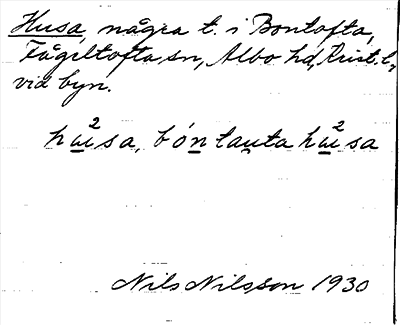 Husa, några t. i Bontofta,
Fågeltofta sn, Albo hd, Krist. l.,
vid byn.
hɯ²sa, bóntauta hɯ²sa
Nils Nilsson 1930